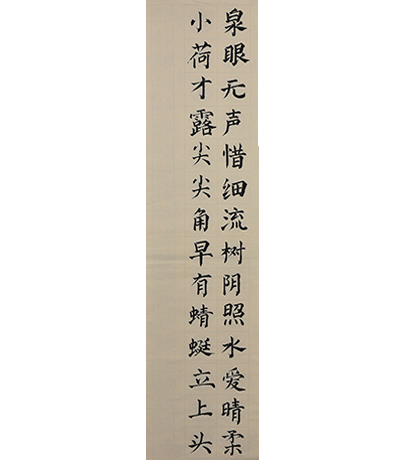 泉眼无声惜细流树阴照水爱晴柔
小荷才露尖尖角早有蜻蜓立上头